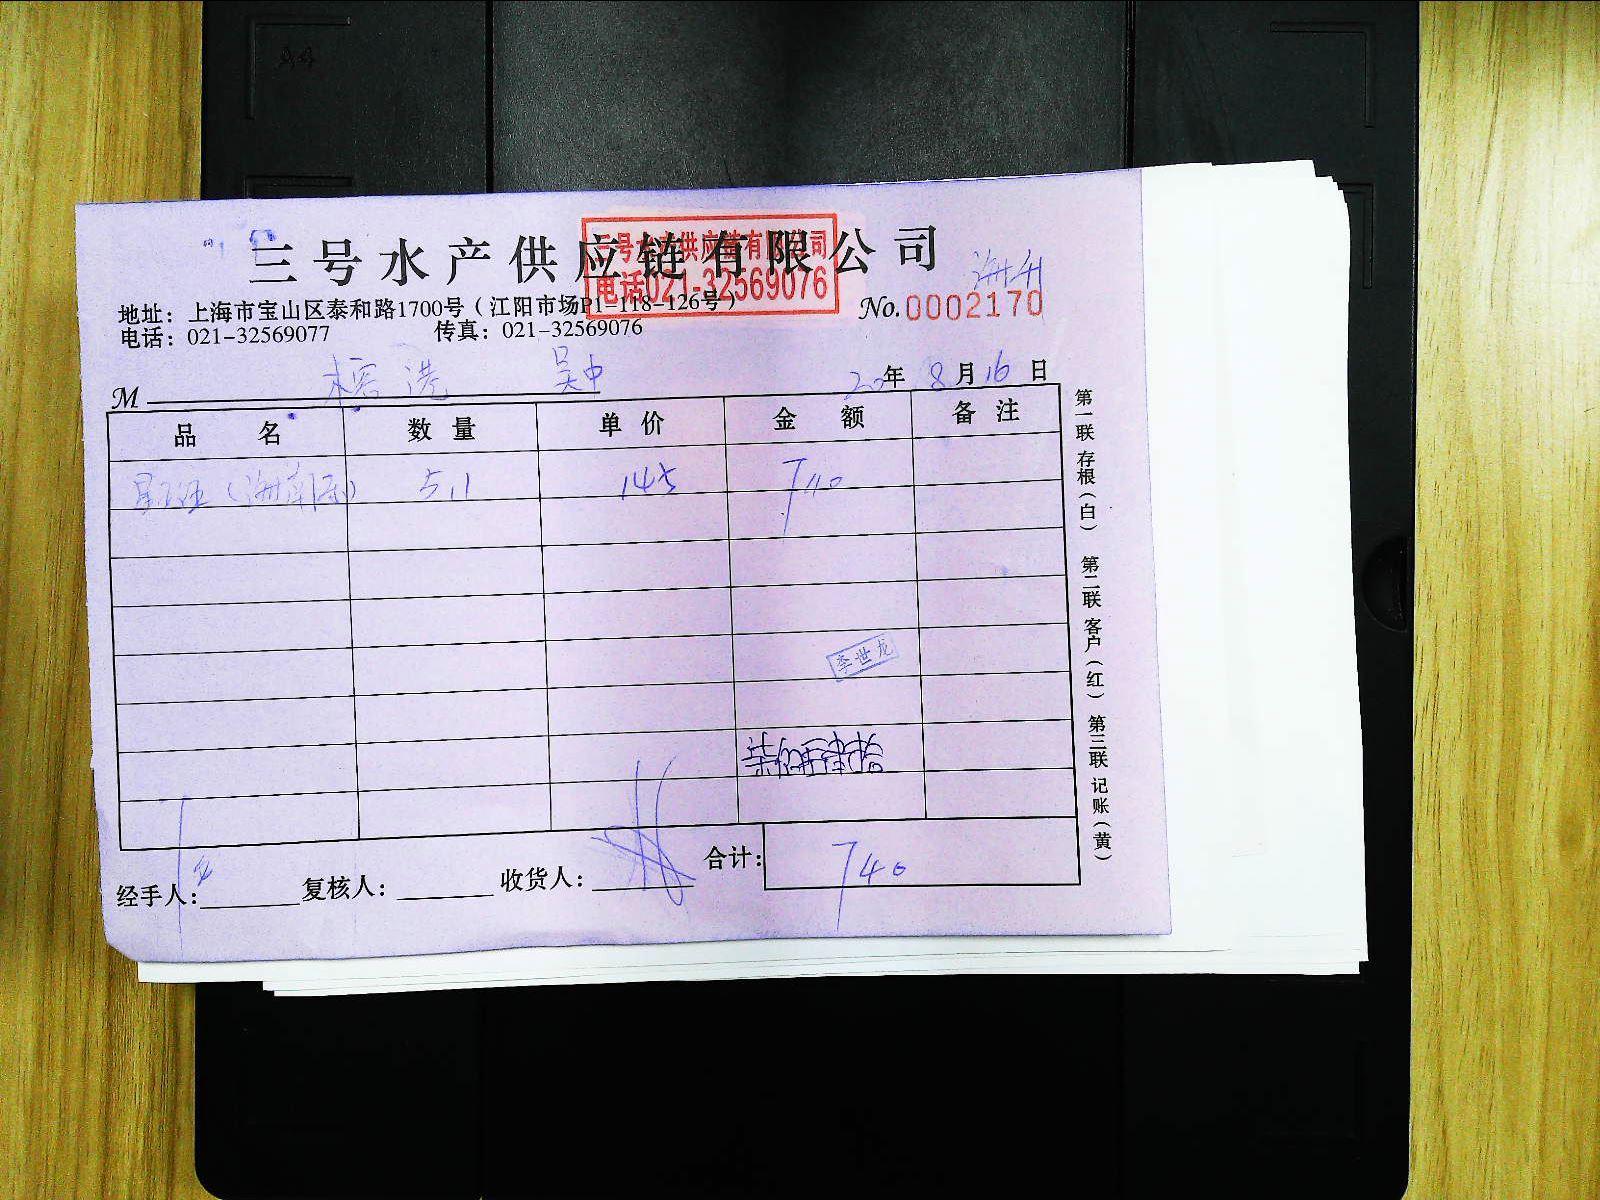 三号水产供应链有限公司
三号水产供应链有限公司
电话021-32569076
海州
地址：上海市宝山区泰和路1700号（江阳市场P1-118-126号）
No.0002170
电话：021-32569077 传真：021-32569076
M 榕港 吴中
20年8月16日
品名 数量 单价 金额 备注
星斑（海南） 5.11 145 740
李世龙
经手人： 复核人： 收货人： 合计：740
第一联 存根（白） 第二联 客户（红） 第三联 记账（黄）